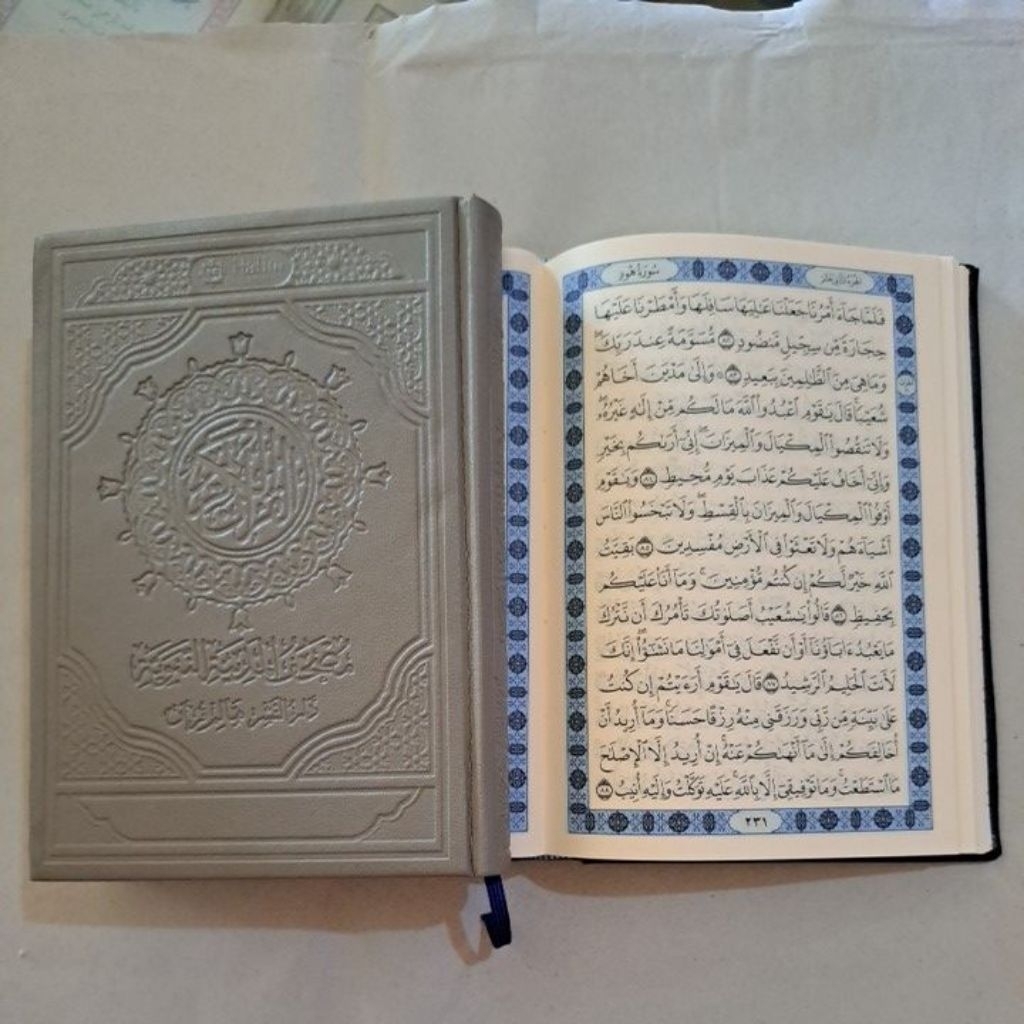 القرآن الكريم
سُورَةُ هُودٍ
الجزء الثاني عشر
فَلَمَّا جَآءَ أَمْرُنَا جَعَلْنَا عَٰلِيَهَا سَافِلَهَا وَأَمْطَرْنَا عَلَيْهَا
حِجَارَةً مِّن سِجِّيلٍ مَّنضُودٍ ٨٢ مُّسَوَّمَةً عِندَ رَبِّكَۖ
وَمَا هِيَ مِنَ ٱلظَّٰلِمِينَ بِبَعِيدٍ ٨٣ ۞ وَإِلَىٰ مَدْيَنَ أَخَاهُمْ
شُعَيْبًاۚ قَالَ يَٰقَوْمِ ٱعْبُدُواْ ٱللَّهَ مَا لَكُم مِّنْ إِلَٰهٍ غَيْرُهُۥۖ
وَلَا تَنقُصُواْ ٱلْمِكْيَالَ وَٱلْمِيزَانَۖ إِنِّيٓ أَرَىٰكُم بِخَيْرٍ
وَإِنِّيٓ أَخَافُ عَلَيْكُمْ عَذَابَ يَوْمٍ مُّحِيطٍ ٨٤ وَيَٰقَوْمِ
أَوْفُواْ ٱلْمِكْيَالَ وَٱلْمِيزَانَ بِٱلْقِسْطِۖ وَلَا تَبْخَسُواْ ٱلنَّاسَ
أَشْيَآءَهُمْ وَلَا تَعْثَوْاْ فِي ٱلْأَرْضِ مُفْسِدِينَ ٨٥ بَقِيَّتُ
ٱللَّهِ خَيْرٌ لَّكُمْ إِن كُنتُم مُّؤْمِنِينَۚ وَمَآ أَنَا۠ عَلَيْكُم
بِحَفِيظٍ ٨٦ قَالُواْ يَٰشُعَيْبُ أَصَلَوٰتُكَ تَأْمُرُكَ أَن نَّتْرُكَ
مَا يَعْبُدُ ءَابَآؤُنَآ أَوْ أَن نَّفْعَلَ فِيٓ أَمْوَٰلِنَا مَا نَشَٰٓؤُاْۖ إِنَّكَ
لَأَنتَ ٱلْحَلِيمُ ٱلرَّشِيدُ ٨٧ قَالَ يَٰقَوْمِ أَرَءَيْتُمْ إِن كُنتُ
عَلَىٰ بَيِّنَةٍ مِّن رَّبِّي وَرَزَقَنِي مِنْهُ رِزْقًا حَسَنًاۚ وَمَآ أُرِيدُ أَنْ
أُخَالِفَكُمْ إِلَىٰ مَآ أَنْهَىٰكُمْ عَنْهُۚ إِنْ أُرِيدُ إِلَّا ٱلْإِصْلَٰحَ
مَا ٱسْتَطَعْتُۚ وَمَا تَوْفِيقِيٓ إِلَّا بِٱللَّهِۚ عَلَيْهِ تَوَكَّلْتُ وَإِلَيْهِ أُنِيبُ ٨٨
٢٣١